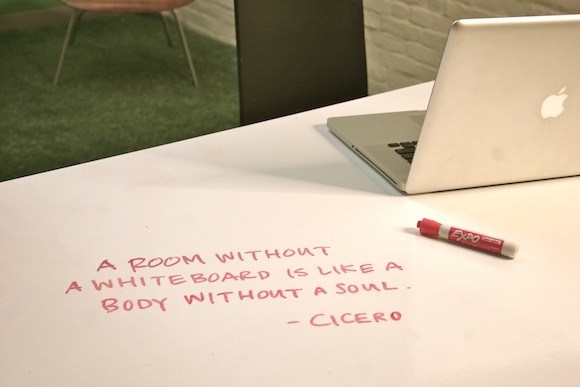 A ROOM WITHOUT
A WHITEBOARD IS LIKE A
BODY WITHOUT A SOUL.
- CICERO
EXPO